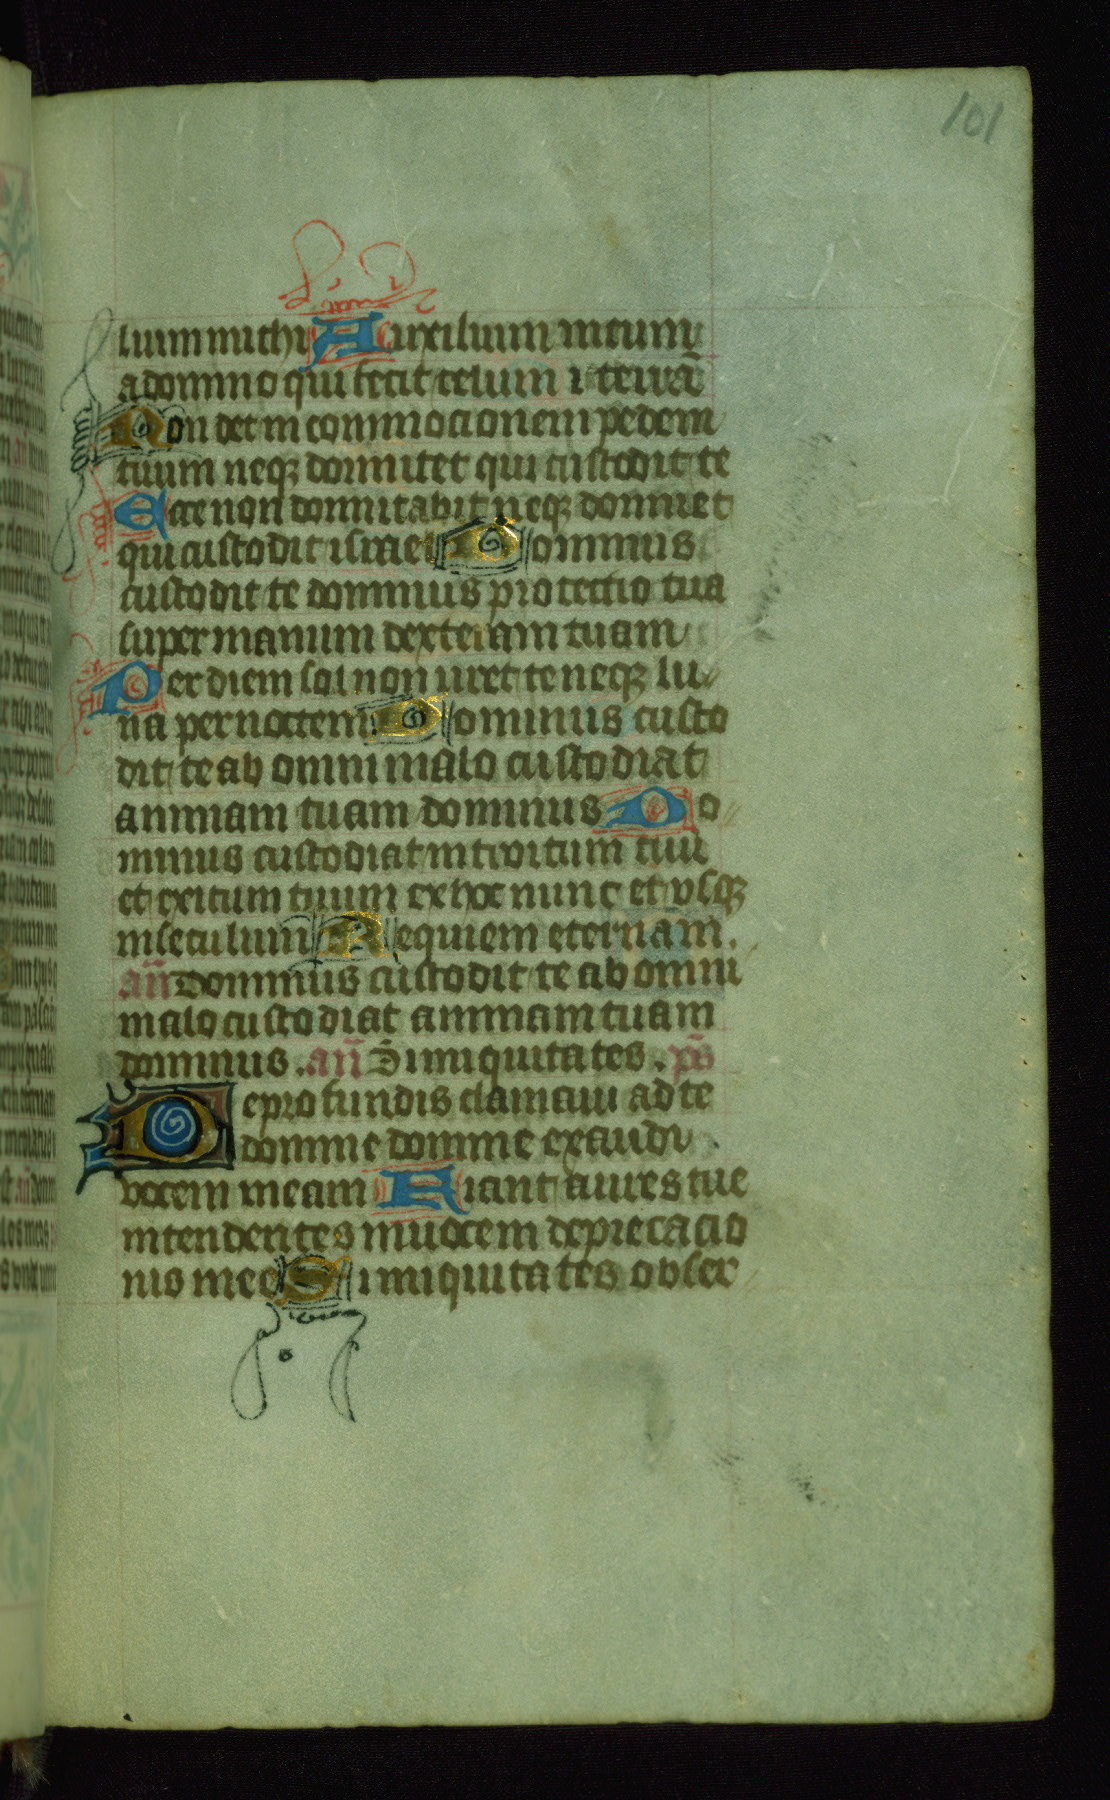 101
lium michi Auxilium meum
a domino qui fecit celum ⁊ terrā
Non det in commocionem pedem
tuum neqꝫ dormitet qui custodit te
Ecce non dormitabit neqꝫ dormiet
qui custodit israel Dominus
custodit te dominus protectio tua
super manum dexteram tuam
Per diem sol non uret te neqꝫ lu
na per noctem Dominus custo
dit te ab omni malo custodiat
animam tuam dominus Do
minus custodiat introitum tuū
et exitum tuum ex hoc nunc et vsqꝫ
in seculum Requiem eternam.
añ Dominus custodit te ab omni
malo custodiat animam tuam
dominus. añ Si iniquitates. p̄s
De profundis clamaui ad te
domine domine exaudi
vocem meam Fiant aures tue
intendentes in uocem deprecacio
nis mee Si iniquitates obser